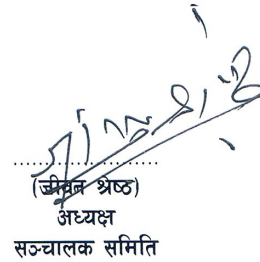 ....................
(जीवन श्रेष्ठ)
अध्यक्ष
सञ्चालक समिति